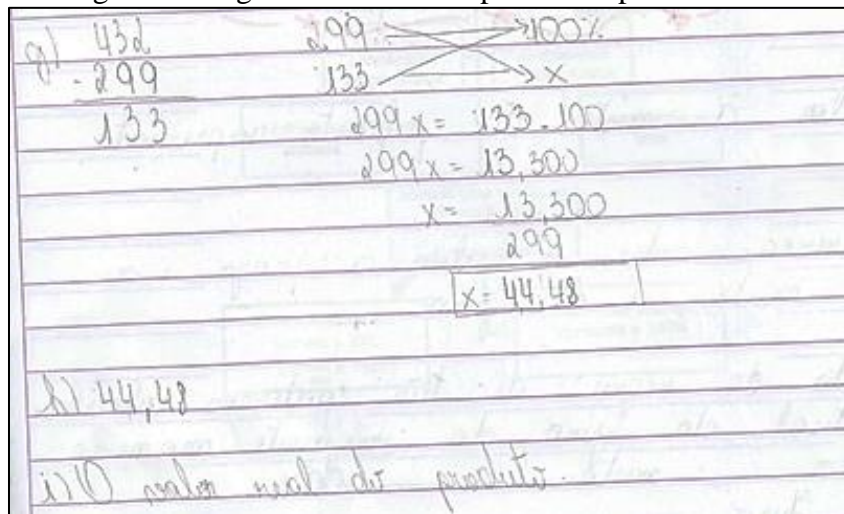 g) 432 299 100%
- 299 133 x
133 299x = 133.100
299x = 13,300
x = 13,300
299
x = 44,48
h) 44,48
i) O valor real do produto.